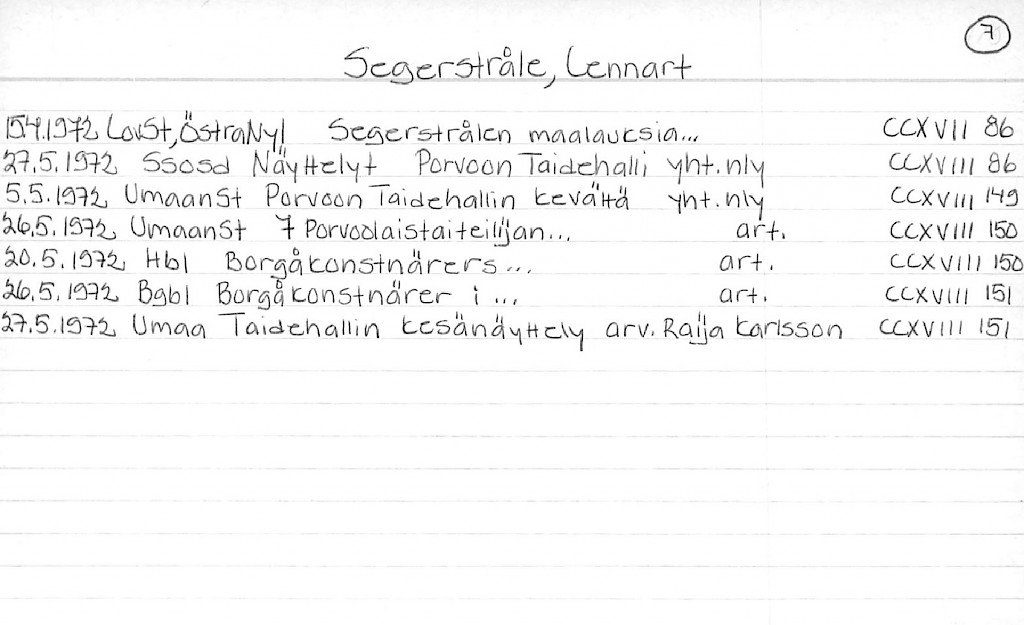 7
Segerstråle, Lennart
15.4.1972 LovSt, ÖstraNyl Segerstrålen maalauksia... CCXVII 86
27.5.1972 Ssosd Näyttelyt Porvoon Taidehalli yht.nly CCXVIII 86
5.5.1972 UmaanSt Porvoon Taidehallin kevättä yht.nly CCXVIII 149
26.5.1972 UmaanSt 7 Porvoolaistaiteilijan... art. CCXVIII 150
20.5.1972 Hbl Borgåkonstnärers... art. CCXVIII 150
26.5.1972 Bgbl Borgåkonstnärer i ... art. CCXVIII 151
27.5.1972 Umaa Taidehallin kesänäyttely arv. Raija Karlsson CCXVIII 151